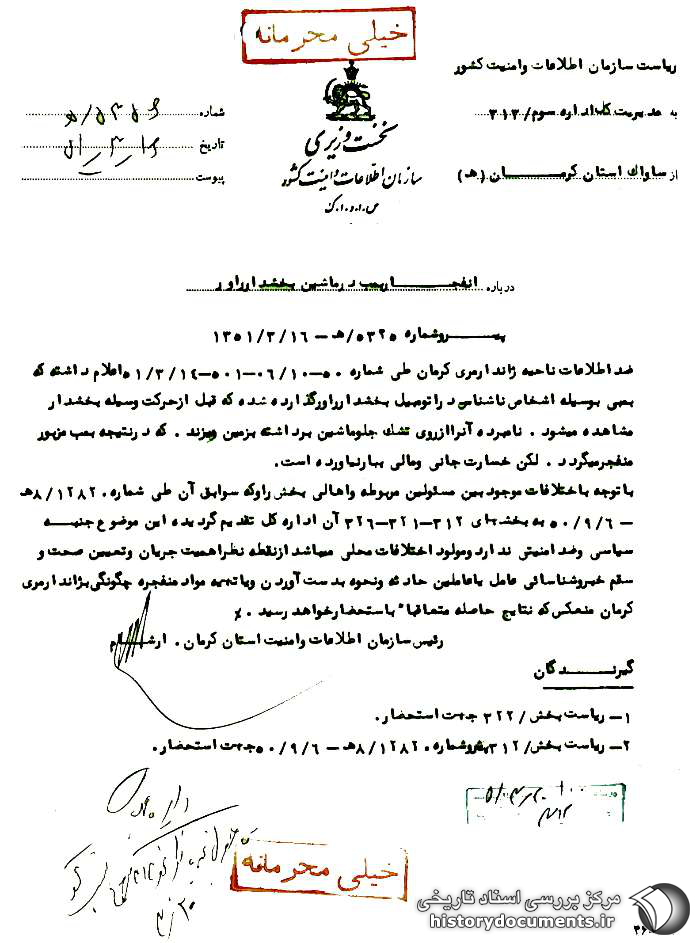 خیلی محرمانه
ریاست سازمان اطلاعات وامنیت کشور
به مدیریت کل اداره سوم/ ۳۱۳
از ساواک استان کرمــــان (هـ)
نخست وزیری
سازمان اطلاعات و امنیت کشور
س.ا.و.ا.ک
شماره
تاریخ
پیوست
درباره انفجــــاربمب درماشین بخشدارراور
پیـــروشماره ۵۳۲۵/هـ – ۱۳۵۱/۳/۱۶
ضداطلاعات ناحیه ژاندارمری کرمان طی شماره ۵۰–۰۶/۱۰–۵۰۱–۵۱/۳/۱۴اعلام داشته که
بمبی بوسیله اشخاص ناشناس دراتومبیل بخشدارراورگذارده شده که قبل ازحرکت وسیله بخشدار
مشاهده میشود . نامبرده آنراازروی تشک جلوماشین برداشته بزمین میزند . که درنتیجه بمب مزبور
منفجرمیگردد . لکن خسارت جانی ومالی ببارنیاورده است.
باتوجه باختلافات موجودبین مسئولین مربوطه واهالی بخش راورکه سوابق آن طی شماره ۸/۱۲۸۲۰هـ
– ۵۰/۹/۶ به بخشهای ۳۱۲–۳۲۱–۳۲۶ آن اداره کل تقدیم گردیده این موضوع جنبـــه
سیاسی وضدامنیتی نداردومولود اختلافات محلی میباشد ازنقطه نظراهمیت جریان وتعیین صحت و
سقم خبروشناسائی عامل یاعاملین حادثه ونحوه بدست آوردن ویاتهیه مواد منفجره چگونگی بژاندارمری
کرمان منعکس که نتایج حاصله متعاقبا" باستحضارخواهد رسید . ٪
رئیس سازمان اطلاعات وامنیت استان کرمان . ارشـــام
گیرنـــدگان
۱– ریاست بخش/ ۳۲۲ جهت استحضار.
۲– ریاست بخش/ ۳۱۲پیروشماره ۸/۱۲۸۲۰هـ – ۵۰/۹/۶جهت استحضار.
خیلی محرمانه
مرکز بررسی اسناد تاریخی
historydocuments.ir